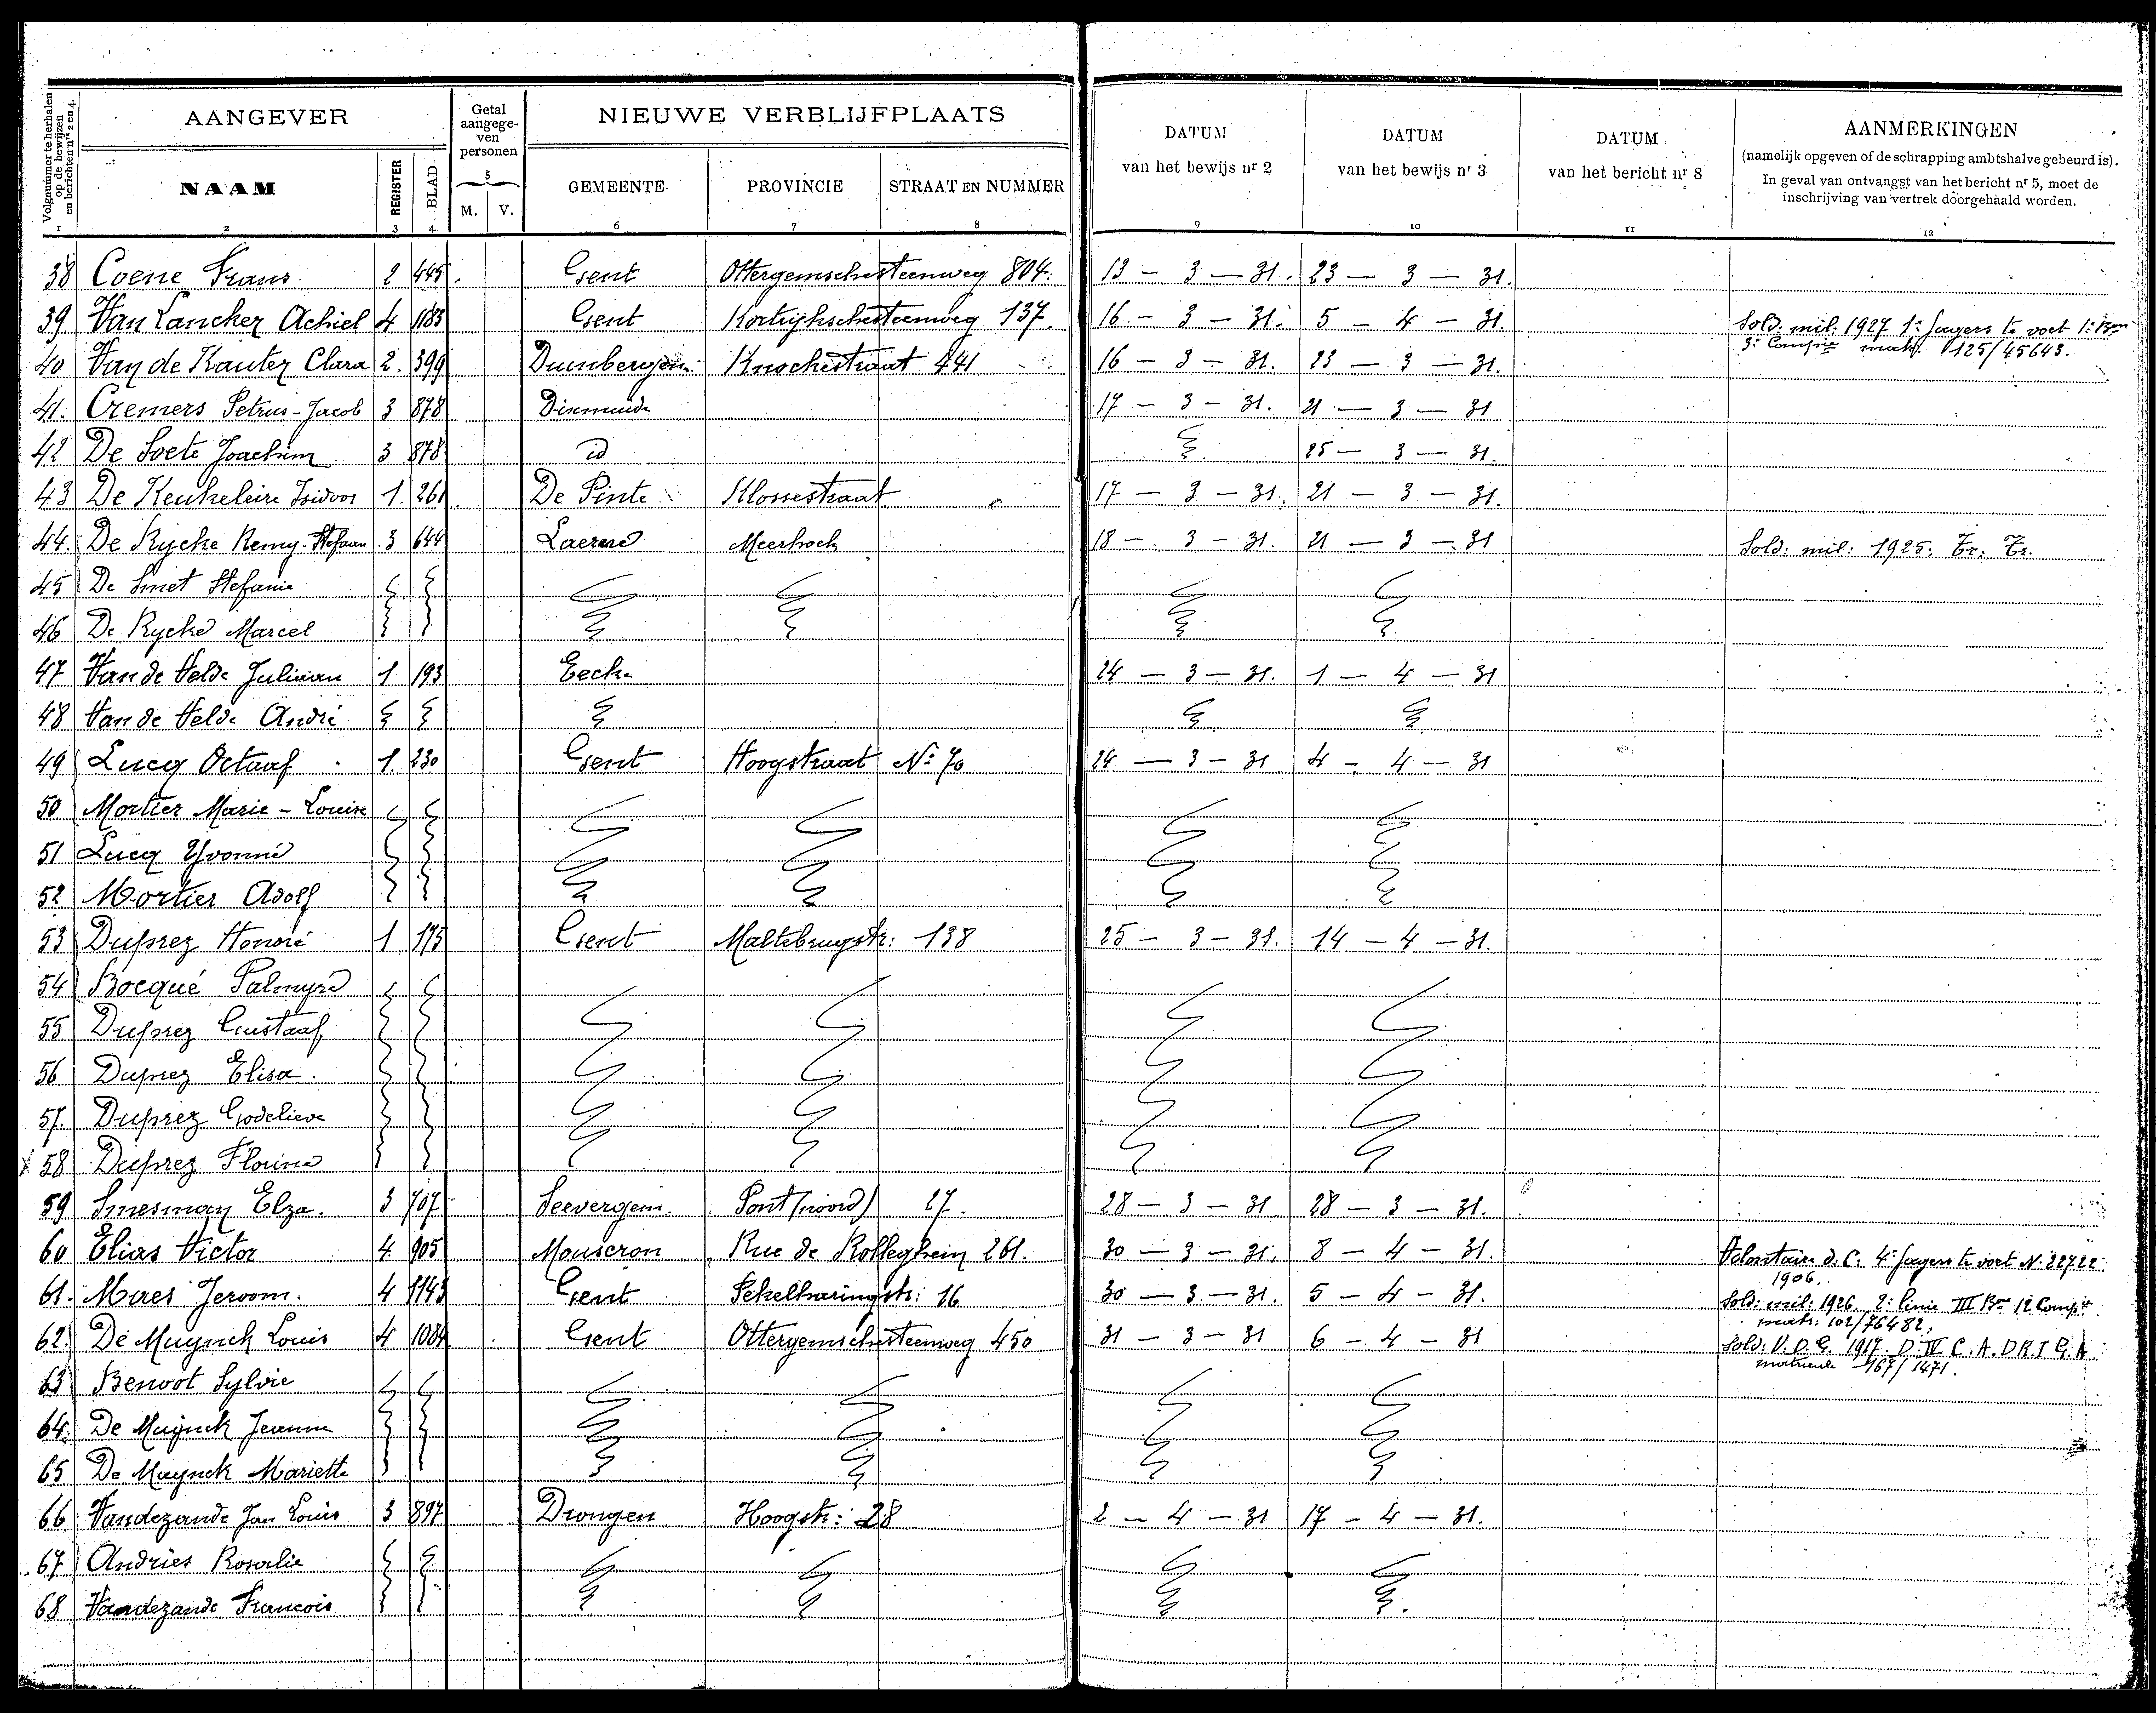 Volgnummer te herhalen op de bewijzen en berichten nrs 2 en 4.
AANGEVER
Getal aangegeven personen
NIEUWE VERBLIJFPLAATS
DATUM van het bewijs nr 2
DATUM van het bewijs nr 3
DATUM van het bericht nr 8
AANMERKINGEN
(namelijk opgeven of de schrapping ambtshalve gebeurd is).
In geval van ontvangst van het bericht nr 5, moet de
inschrijving van vertrek doorgehaald worden.
NAAM REGISTER BLAD 5 M. V. GEMEENTE PROVINCIE STRAAT EN NUMMER
1 2 3 4 6 7 8 9 10 11 12
38 Coene Frans 2 445 Gent Ottergemschesteenweg 804 13 - 3 - 31. 23 - 3 - 31.
39 Van Lancker Achiel 4 1183 Gent Kortrijkschesteenweg 137. 16 - 3 - 31. 5 - 4 - 31. Sold. mil. 1927 1e Jagers te voet 1e Bon
3e Compie matr. 125/45643.
40 Van de Kauter Clara 2. 399 Duinbergen Knockestraat 441 16 - 3 - 31. 23 - 3 - 31.
41. Cremers Petrus-Jacob 3 878 Dixmude 17 - 3 - 31. 21 - 3 - 31
42 De Soete Joachim 3 878 id 25 - 3 - 31.
43 De Keukeleire Isidoor 1. 261 De Pinte Klossestraat 17 - 3 - 31. 21 - 3 - 31.
44. De Rycke Remy-Stefaan 3 644 Laerne Meerhoek 18 - 3 - 31. 21 - 3 - 31 Sold: mil: 1925. Tr. Tr.
45 De Smet Stefanie
46 De Rycke Marcel
47 Van de Velde Juliaan 1 193 Eecke 24 - 3 - 31. 1 - 4 - 31
48 Van de Velde André
49 Lucq Octaaf 1. 230 Gent Hoogstraat No 70 24 - 3 - 31 4 - 4 - 31
50 Mortier Marie-Louise
51 Lucq Yvonne
52 Mortier Adolf
53 Duprez Honoré 1 175 Gent Maltebrugstr: 138 25 - 3 - 31. 14 - 4 - 31.
54 Bocqué Palmyre
55 Duprez Gustaaf
56 Duprez Elisa.
57. Duprez Godelieve
58 Duprez Florine
59 Smesman Elza. 3 707 Seevergem. Pont (noord) 27. 28 - 3 - 31. 28 - 3 - 31.
60 Elias Victor 4. 905 Mouscron Rue de Rolleghem 261. 30 - 3 - 31. 8 - 4 - 31. Volontair d. C. 4e Jagers te voet N. 22722
1906.
61. Maes Jeroom. 4 1143 Gent Sekelharingstr: 16 30 - 3 - 31. 5 - 4 - 31. Sold: mil: 1926. 2e linie III Bon 12 Compie
matr: 102/76482,
62. De Muynck Louis 4 1084 Gent Ottergemschesteenweg 450 31 - 3 - 31 6 - 4 - 31 Sold: V. D. G. 1917. D. IV C. A. D R. I G. A.
matricule 167/1471.
63 Benoot Sylvie
64. De Muynck Jeanne
65 De Muynck Mariette
66 Vandezande Jan Louis 3 897 Drongen Hoogstr: 28 2 - 4 - 31 17 - 4 - 31.
67 Andries Rosalie
68 Vandezande Francois